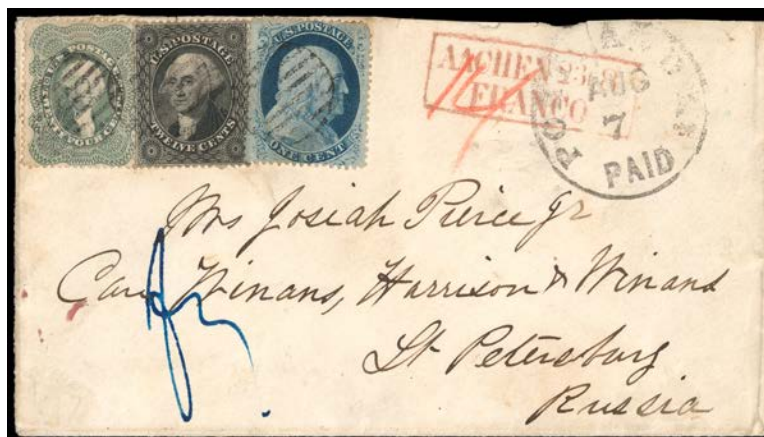 U.S. POSTAGE
TWENTY FOUR CENTS
U.S. POSTAGE
TWELVE CENTS
U.S. POSTAGE
ONE CENT
AACHEN
FRANCO
AUG
7
PAID
Mrs Josiah Pierce Jr
Care Winans, Harrison & Winans
St Petersburg
Russia